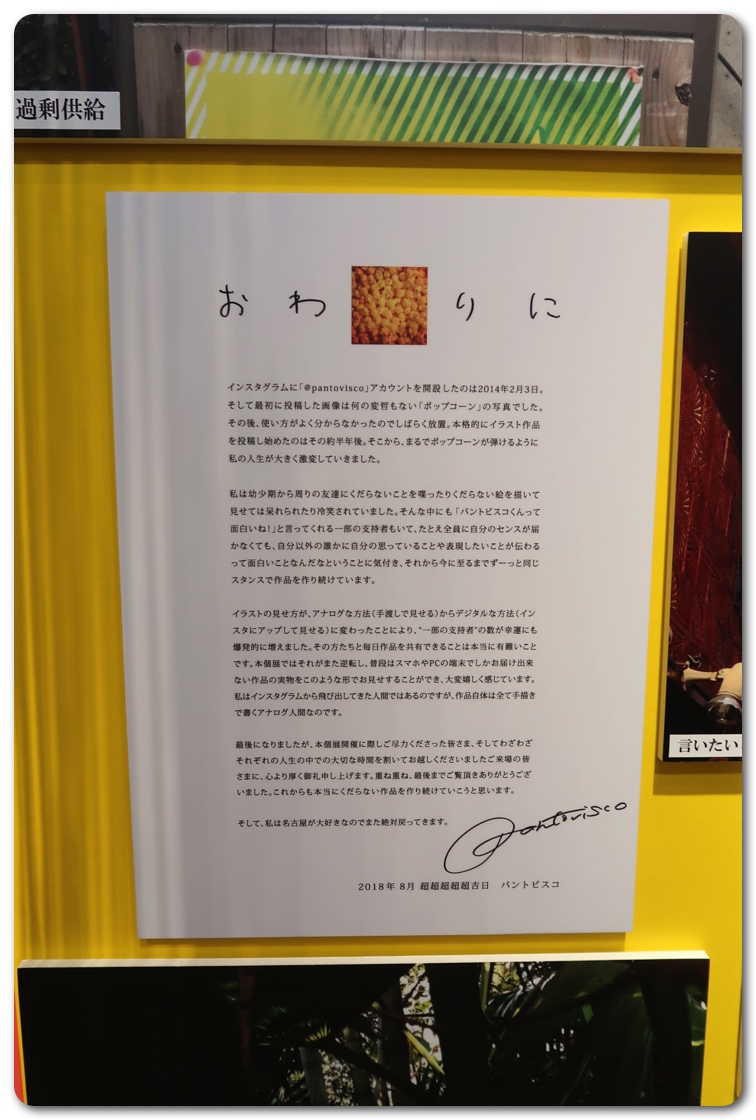 過剰供給
おわりに
インスタグラムに「@pantovisco」アカウントを開設したのは2014年2月3日。
そして最初に投稿した画像は何の変哲もない「ポップコーン」の写真でした。
その後、使い方がよく分からなかったのでしばらく放置。本格的にイラスト作品
を投稿し始めたのはその約半年後。そこから、まるでポップコーンが弾けるように
私の人生が大きく激変していきました。
私は幼少期から周りの友達にくだらないことを喋ったりくだらない絵を描いて
見せては呆れられたり冷笑されていました。そんな中にも「パントビスコくんって
面白いね！」と言ってくれる一部の支持者もいて、たとえ全員に自分のセンスが届
かなくても、自分以外の誰かに自分の思っていることや表現したいことが伝わる
って面白いことなんだなということに気付き、それから今に至るまでずーっと同じ
スタンスで作品を作り続けています。
イラストの見せ方が、アナログな方法（手渡しで見せる）からデジタルな方法（イン
スタにアップして見せる）に変わったことにより、“一部の支持者”の数が幸運にも
爆発的に増えました。その方たちと毎日作品を共有できることは本当に有難いこと
です。本個展ではそれがまた逆転し、普段はスマホやPCの端末でしかお届け出来
ない作品の実物をこのような形でお見せすることができ、大変嬉しく感じています。
私はインスタグラムから飛び出してきた人間ではあるのですが、作品自体は全て手描き
で書くアナログ人間なのです。
最後になりましたが、本個展開催に際しご尽力くださった皆さま、そしてわざわざ
それぞれの人生の中での大切な時間を割いてお越しくださいましたご来場の皆
さまに、心より厚く御礼申し上げます。重ね重ね、最後までご覧頂きありがとうござ
いました。これからも本当にくだらない作品を作り続けていこうと思います。
そして、私は名古屋が大好きなのでまた絶対戻ってきます。
Pantovisco
2018年 8月 超超超超超吉日 パントビスコ
言いたい